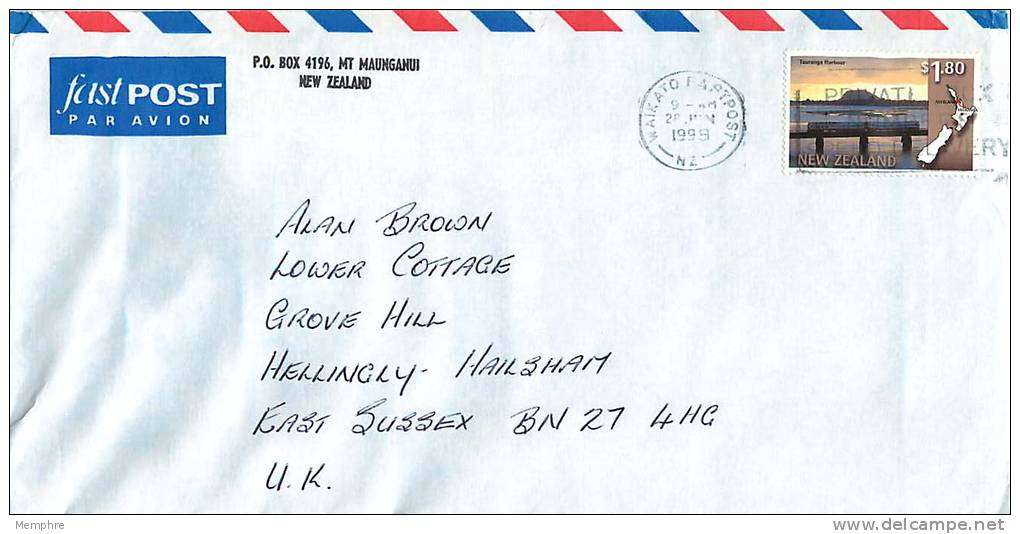 fast POST
PAR AVION
P.O. BOX 4196, MT MAUNGANUI
NEW ZEALAND
WAIKATO FASTPOST
9 -
1999
NZ
Tauranga Harbour
$1.80
NEW ZEALAND
ALAN BROWN
LOWER COTTAGE
GROVE HILL
HELLINGLY- HAILSHAM
EAST SUSSEX BN 27 4HG
U.K.
Memphre
delcampe.net